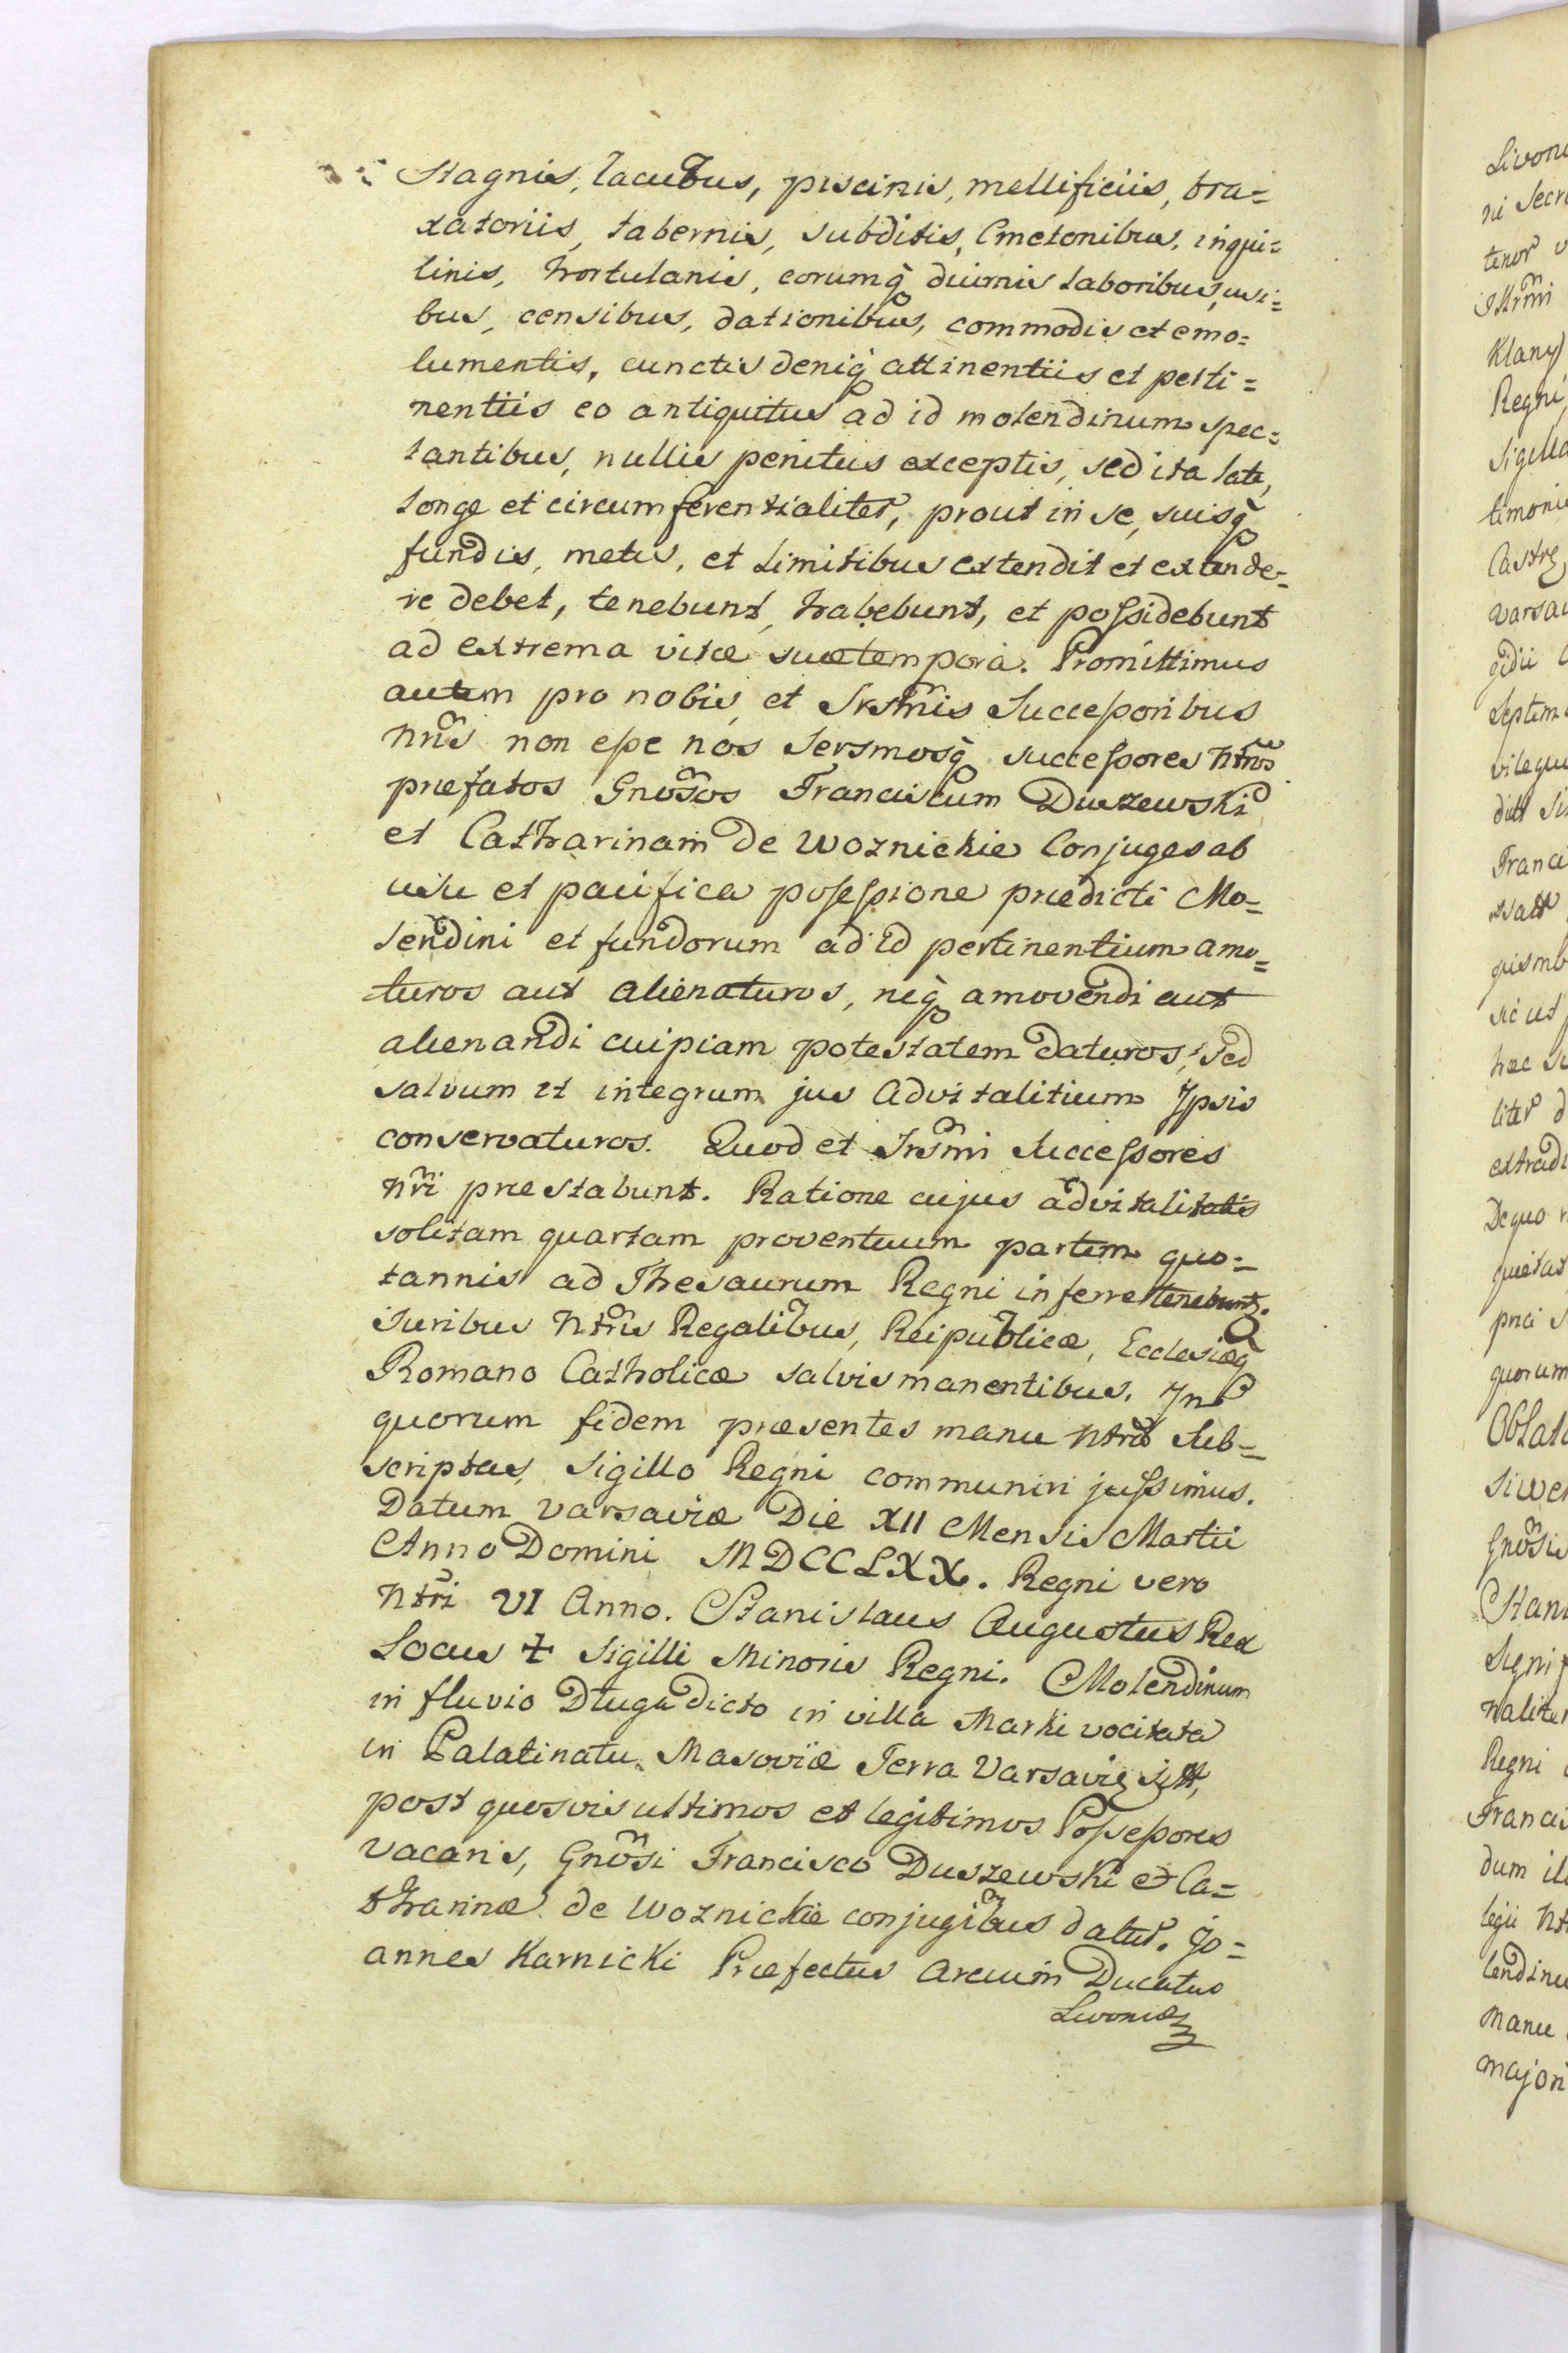 Stagnis, lacubus, piscinis, mellificiis, bra=
xatoriis, tabernis, subditis, Cmetonibus, inqui=
linis, hortulanis, eorumq̀ diurnis laboribus, usi=
bus, censibus, dationibus, commodis et emo=
lumentis, cunctis deniq̀ attinentiis et perti=
nentiis eo antiquitus ad id molendinum spec=
tantibus, nullis penitus exceptis, sed ita late,
longe et circumferentialiter, prout in se, suisq̀
fundis, metis, et Limitibus extendit et extende=
re debet, tenebunt, habebunt, et possidebunt
ad extrema vitæ suæ tempora. Promittimus
autem pro nobis, et Srsm̃is Successoribus
nr̃is non esse nos Sersmosq̀ successores ntr̃os
præfatos Gnõsos Franciscum Duszewski
et Catharinam de Woznickie Conjuges ab
usu et pacifica possessione prædicti Mo=
lendini et fundorum ad id pertinentium amo=
turos aut alienaturos, neq̀ amovendi aut
alienandi cuipiam potestatem daturos, sed
salvum et integrum jus Advitalitium Ipsis
conservaturos. Quod et Srsm̃i Successores
nr̃i præstabunt. Ratione cujus advitalitatis
solitam quartam proventuum partem quo=
tannis ad Thesaurum Regni inferre tenebunt.
Juribus Ntr̃is Regalibus, Reipublicæ, Ecclesiæq̀
Romano Catholicæ salvis manentibus. In
quorum fidem præsentes manu ntrã Sub=
scriptas, Sigillo Regni communiri jussimus.
Datum Varsaviæ Die XII Mensis Martii
Anno Domini MDCCLXX. Regni vero
Ntr̃i VI Anno. Stanislaus Augustus Rex
Locus + Sigilli Minoris Regni. Molendinum
in fluvio Długa dicto in villa Marki vocitata
in Palatinatu Masoviæ Terra Varsavię
post quosvis ultimos et legitimos Possessores
vacans, Gnõsi Francisco Duszewski et Ca=
tharinæ de Woznickie conjugibus datur. Jo=
annes Karnicki Præfectus Arcium Ducatus
Livoniæ